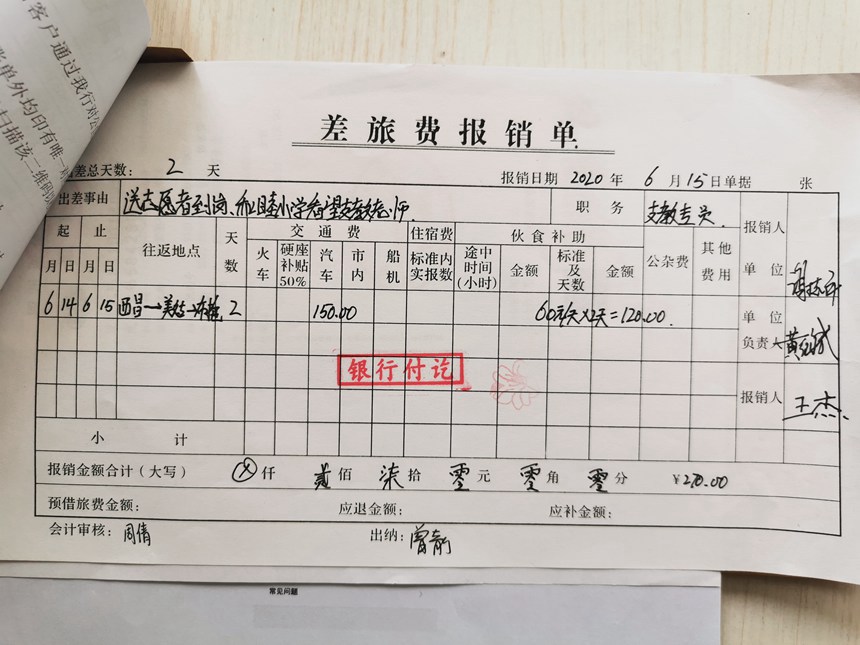 客户通过我行对公
账单外均印有唯一
扫描该二维码
差旅费报销单
差总天数: 2 天 报销日期 2020 年 6 月 15 日 单据 张
出差事由 送志愿者到岗、 小学看望支教老师 职务 支教专员 报销人
起 止 往返地点 天数 交通费 住宿费 伙食补助 公杂费 其他费用 单位
月 日 月 日 火车 硬座补贴50% 汽车 市内 船机 标准内实报数 途中时间(小时) 金额 标准及天数 金额
6 14 6 15 西昌→美姑→ 2 150.00 60元/天×2天=120.00 单位负责人
银行付讫
报销人 王杰
小计
报销金额合计(大写) ⊗仟 贰佰 柒拾 零元 零角 零分 ¥270.00
预借旅费金额: 应退金额: 应补金额:
会计审核: 周倩 出纳:
常见问题